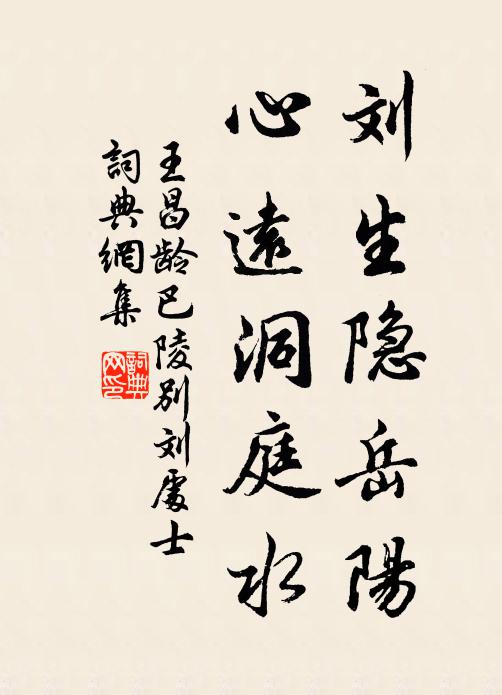 刘生隐岳陽
心遠洞庭水
王昌龄巴陵别刘處士
詞典網集
詞典网印